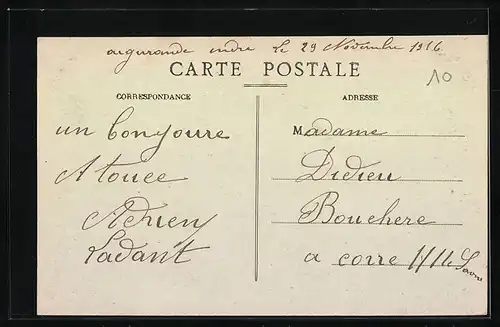 aigurande indre le 29 Novembre 1916
CARTE POSTALE
10
CORRESPONDANCE
ADRESSE
un bonjoure
A touee
Adrien
Ladant
Madame
Didieu
Bouchere
a corre